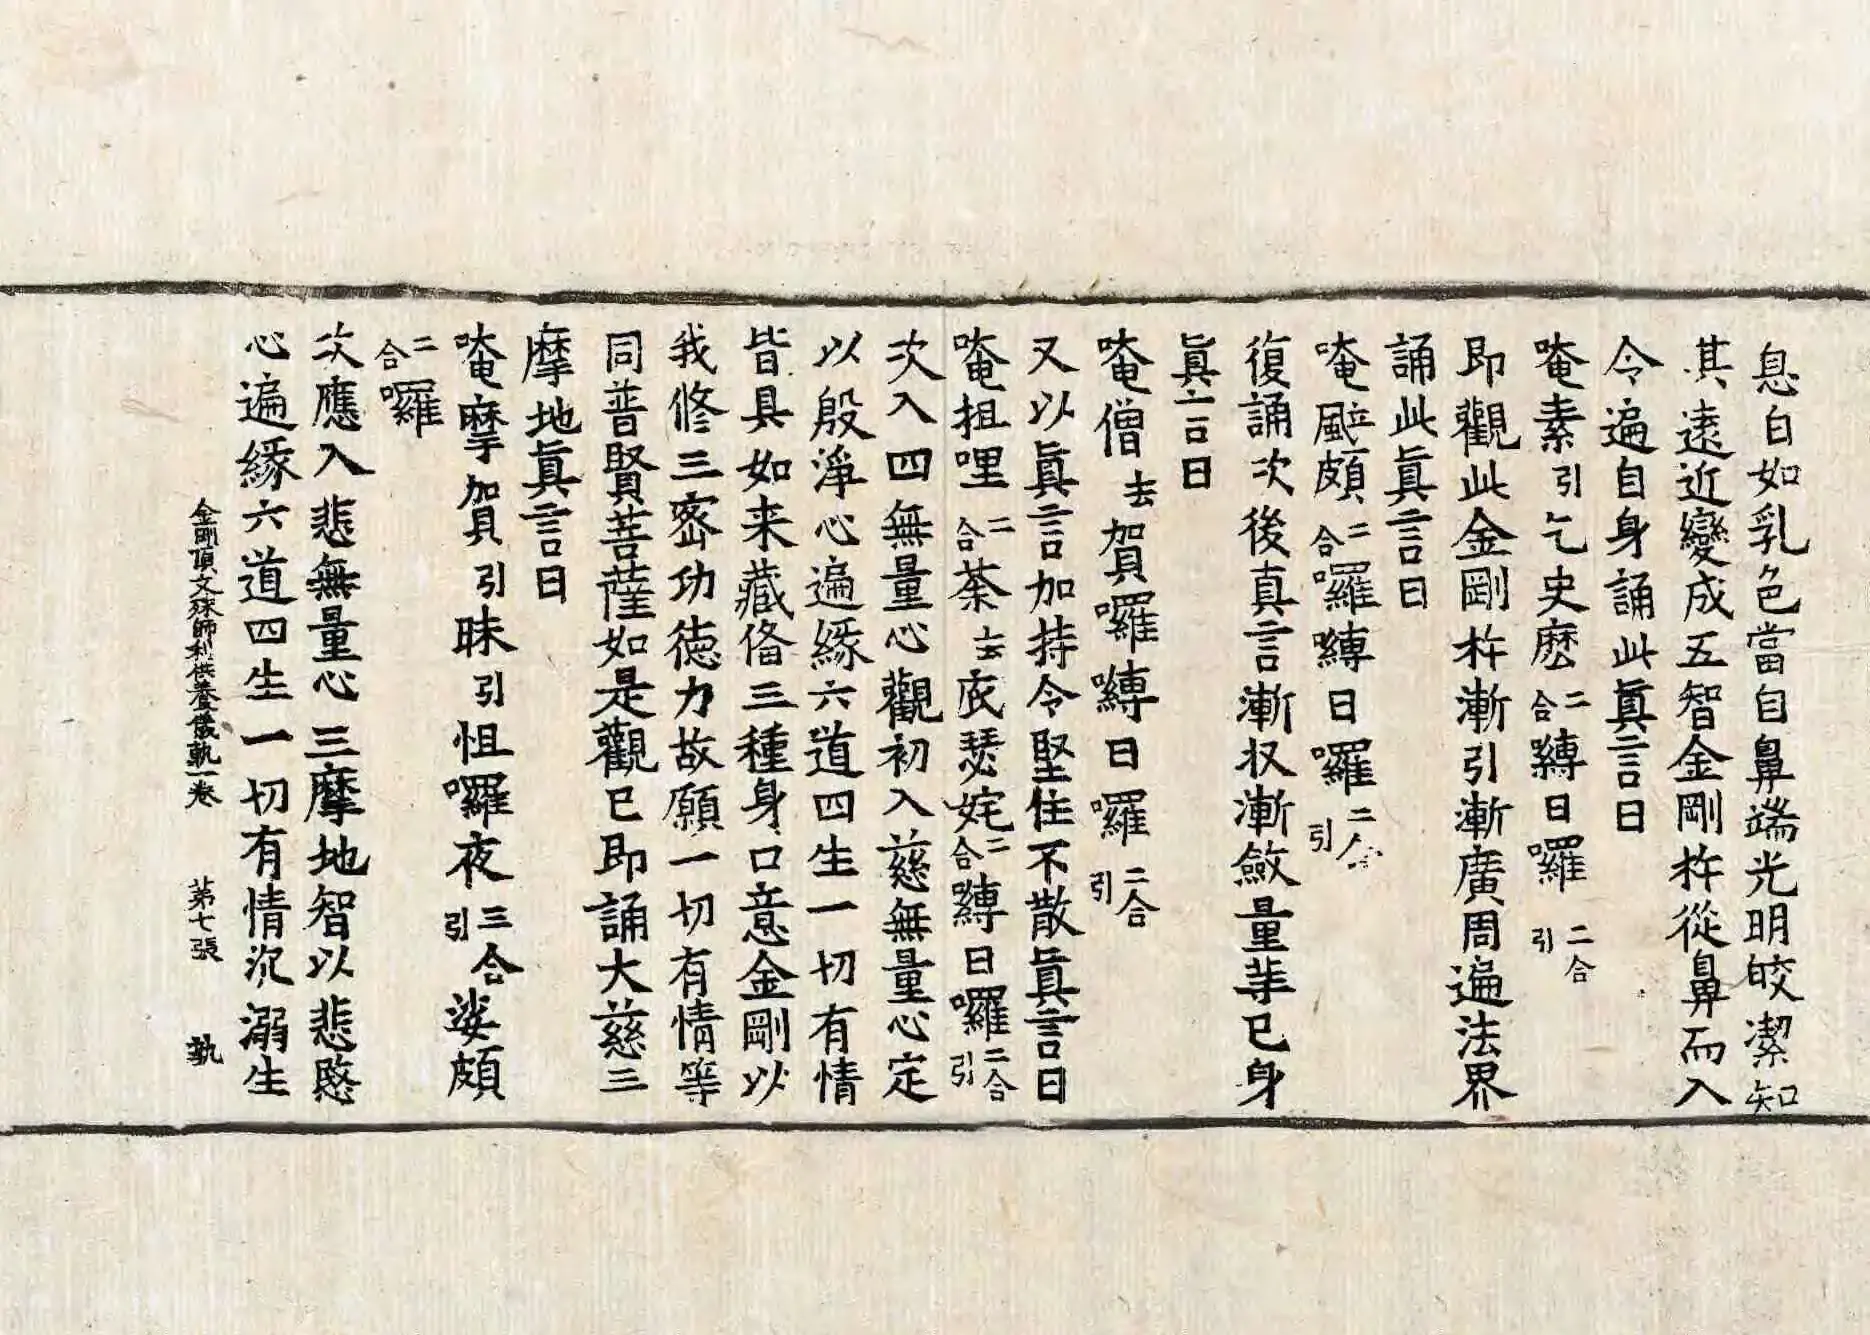 息白如乳色當自鼻端光明皎潔知
其遠近變成五智金剛杵從鼻而入
令遍自身誦此眞言曰
唵素引乞史麽二合嚩日囉二合引
即觀此金剛杵漸引漸廣周遍法界
誦此眞言曰
唵颰頗二合囉嚩日囉二合引
復誦次後真言漸収漸斂量等已身
眞言曰
唵僧去賀囉嚩日囉二合引
又以眞言加持令堅住不散眞言曰
唵抯哩二合荼去底瑟姹二合嚩日囉二合引
次入四無量心觀初入慈無量心定
以殷淨心遍緣六道四生一切有情
皆具如来藏俻三種身口意金剛以
我修三密功德力故願一切有情等
同普賢菩薩如是觀已即誦大慈三
摩地眞言曰
唵摩賀引昧引怚囉夜三合引娑頗
二合囉
次應入悲無量心三摩地智以悲愍
心遍緣六道四生一切有情沉溺生
金剛頂文殊師利供養儀軌一卷 第七張 執